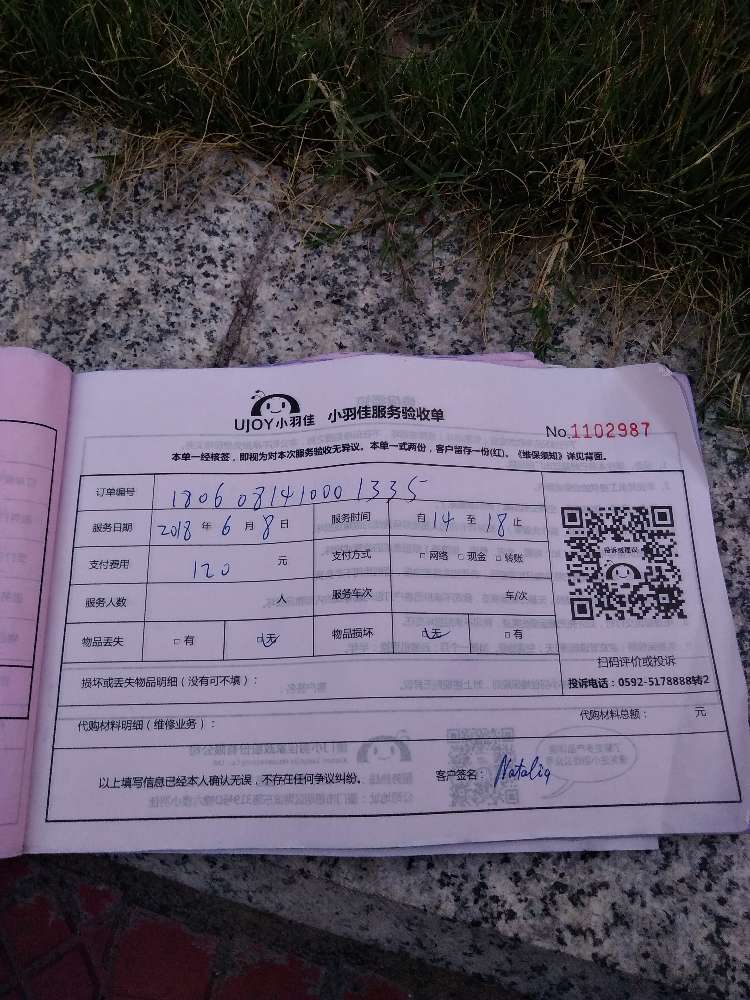 UJOY小羽佳 小羽佳服务验收单
No.1102987
本单一经核签，即视为对本次服务验收无异议。本单一式两份，客户留存一份(红)。《维保须知》详见背面。
订单编号 1806081410001335
服务日期 2018 年 6 月 8 日 服务时间 自 14 至 18 止
支付费用 120 元 支付方式 □ 网络 □ 现金 □ 转账
投诉或建议
服务人数 人 服务车次 车/次
物品丢失 □ 有 □ 无 物品损坏 □ 无 □ 有
扫码评价或投诉
投诉电话：0592-5178888转2
损坏或丢失物品明细（没有可不填）：
代购材料明细（维修业务）： 代购材料总额： 元
以上填写信息已经本人确认无误，不存在任何争议纠纷。 客户签名： Natalia